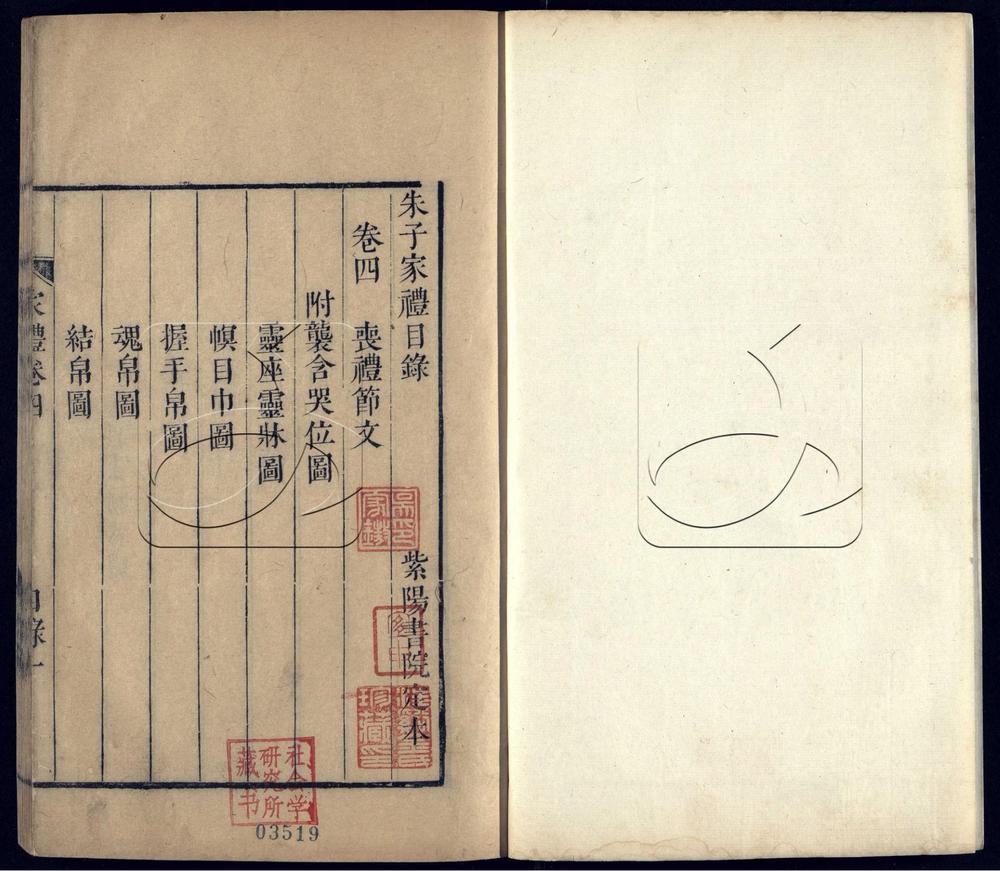 朱子家禮目錄
紫陽書院定本
卷四
喪禮節文
附襲含哭位圖
靈座靈牀圖
幎目巾圖
握手帛圖
魂帛圖
結帛圖
家禮卷四
目錄一
社会学
研究所
藏书
03519